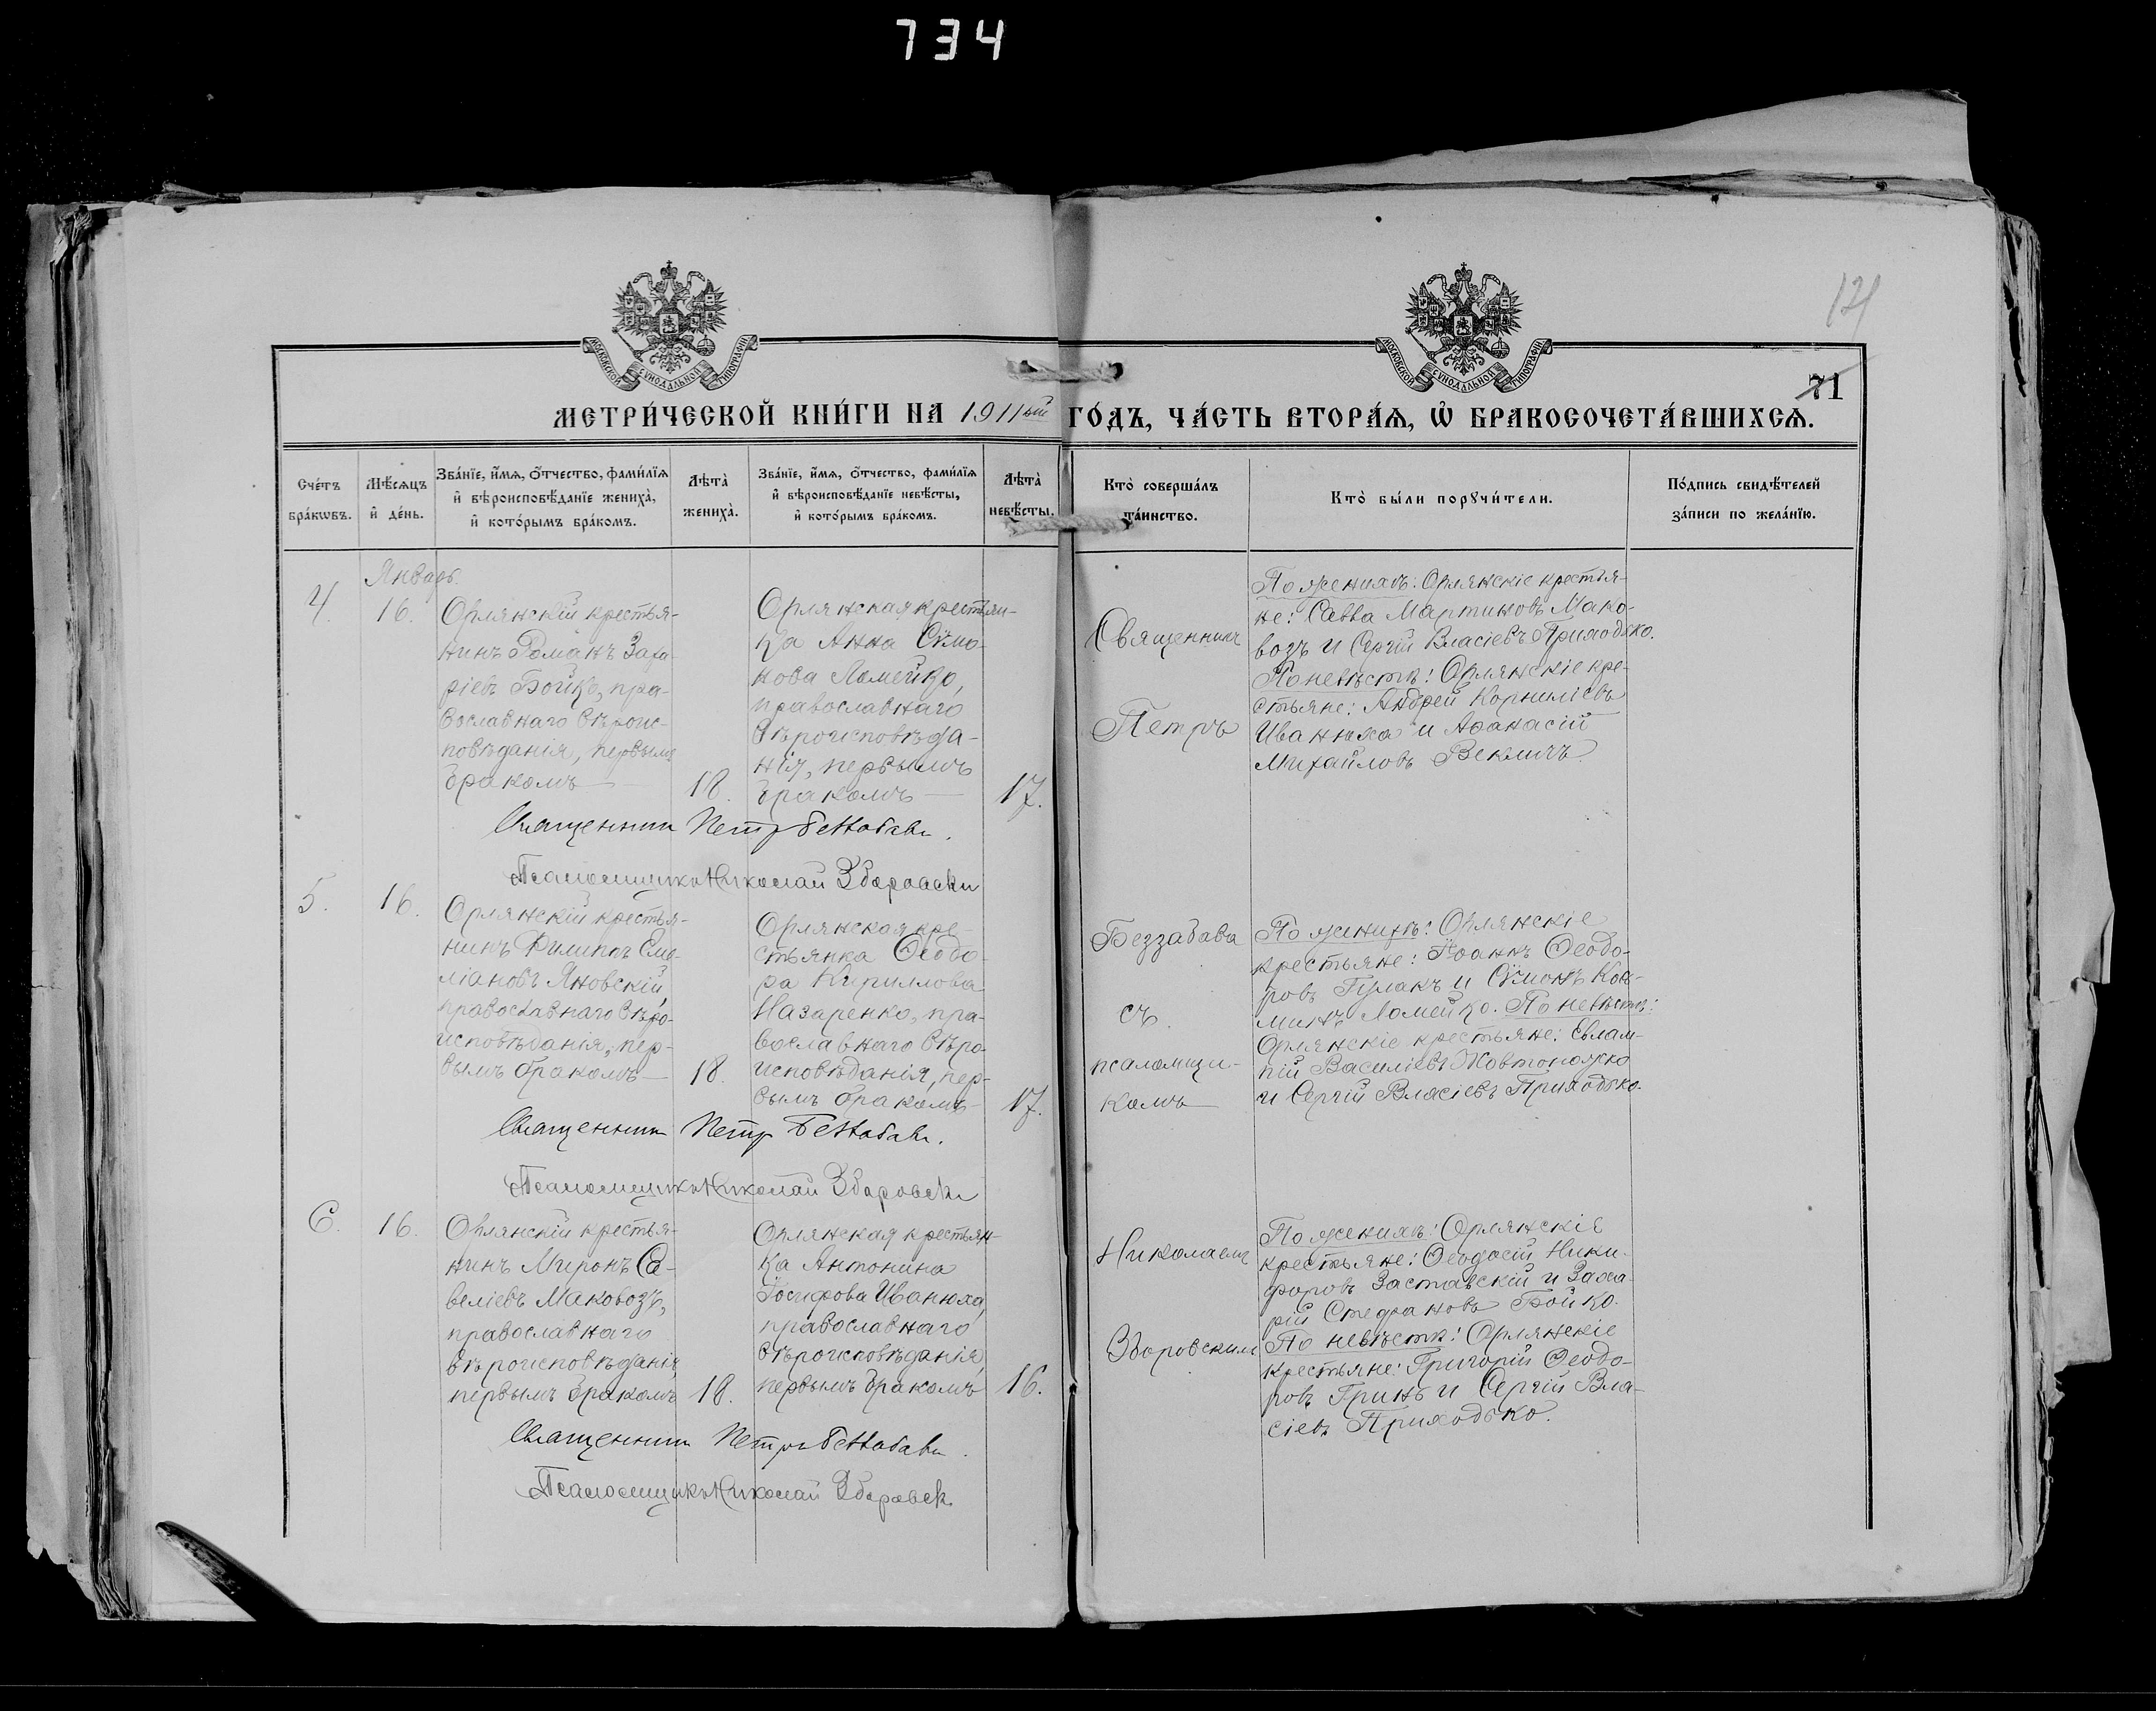 734
121
71
МОСКОВСКОЙ СѴНОДАЛЬНОЙ ТИПОГРАФІИ
МОСКОВСКОЙ СѴНОДАЛЬНОЙ ТИПОГРАФІИ
МЕТРИ́ЧЕСКОЙ КНИ́ГИ НА 1911ый ГО́ДЪ, ЧА́СТЬ ВТОРА́Ѧ, Ѽ БРАКОСОЧЕТА́ВШИХСѦ.
Сче́тъ бра́кѡвъ.
Мѣ́сѧцъ и҆ де́нь.
Зва́нїе, и҆́мѧ, ѻ҆́тчество, фами́лїѧ и҆ вѣроисповѣ́данїе жениха̀, и҆ кото́рымъ бра́комъ.
Лѣ́та̀ жениха̀.
Зва́нїе, и҆́мѧ, ѻ҆́тчество, фами́лїѧ и҆ вѣроисповѣ́данїе невѣ́сты, и҆ кото́рымъ бра́комъ.
Лѣ́та̀ невѣ́сты.
Кто̀ соверша́лъ та́инство.
Кто̀ бы́ли порꙋчи́тели.
По́дпись свидѣ́телей за́писи по жела́нїю.
Январь.
4.
16.
Орлянскій крестья-
нинъ Романъ Заха-
ріевъ Бойко, пра-
вославнаго вѣроис-
повѣданія, первымъ
бракомъ
18.
Орлянская крестьян-
ка Анна Сѵмо-
нова Ломейко,
православнаго
вѣроисповѣда-
нія, первымъ
бракомъ
17.
По женихѣ: Орлянскіе крестья-
не: Савва Мартиновъ Мако-
возъ и Сергій Власіевъ Приходько.
По невѣстѣ: Орлянскіе кре-
стьяне: Андрей Корниліевъ
Иванюха и Аѳанасій
Михайловъ Векличъ.
Священникъ Петръ Беззабава.
Псаломщикъ Николай Здоровски
5.
16.
Орлянскій крестья-
нинъ Филиппъ Еми-
ліановъ Яновскій,
православнаго вѣро-
исповѣданія, пер-
вымъ бракомъ
18.
Орлянская кре-
стьянка Ѳеодо-
ра Кириллова
Назаренко, пра-
вославнаго вѣро-
исповѣданія, пер-
вымъ бракомъ
17.
По женихѣ: Орлянскіе
крестьяне: Іоаннъ Ѳеодо-
ровъ и Сѵмонъ
Ломейко. По невѣстѣ:
Орлянскіе крестьяне: Евлам-
пій Василіевъ Жовтоножко
и Сергій Власіевъ Приходько.
Священникъ Петръ Беззабава.
Псаломщикъ Николай Здоровски
6.
16.
Орлянскій крестья-
нинъ Миронъ Са-
веліевъ Маковозъ,
православнаго
вѣроисповѣданія,
первымъ бракомъ
18.
Орлянская крестьян-
ка Антонина
Іосифова Иванюха,
православнаго
вѣроисповѣданія,
первымъ бракомъ
16.
По женихѣ: Орлянскіе
крестьяне: Ѳеодосій Ники-
форовъ Заставскій и Заха-
рій Стефановъ Бойко.
По невѣстѣ: Орлянскіе
крестьяне: Григорій Ѳеодо-
ровъ Гринь и Сергій Вла-
сіевъ Приходько.
Священникъ Петръ Беззабава.
Псаломщикъ Николай Здоровск.
Священникъ
Петръ
Беззабава
съ
псаломщи-
комъ
Николаемъ
Здоровскимъ